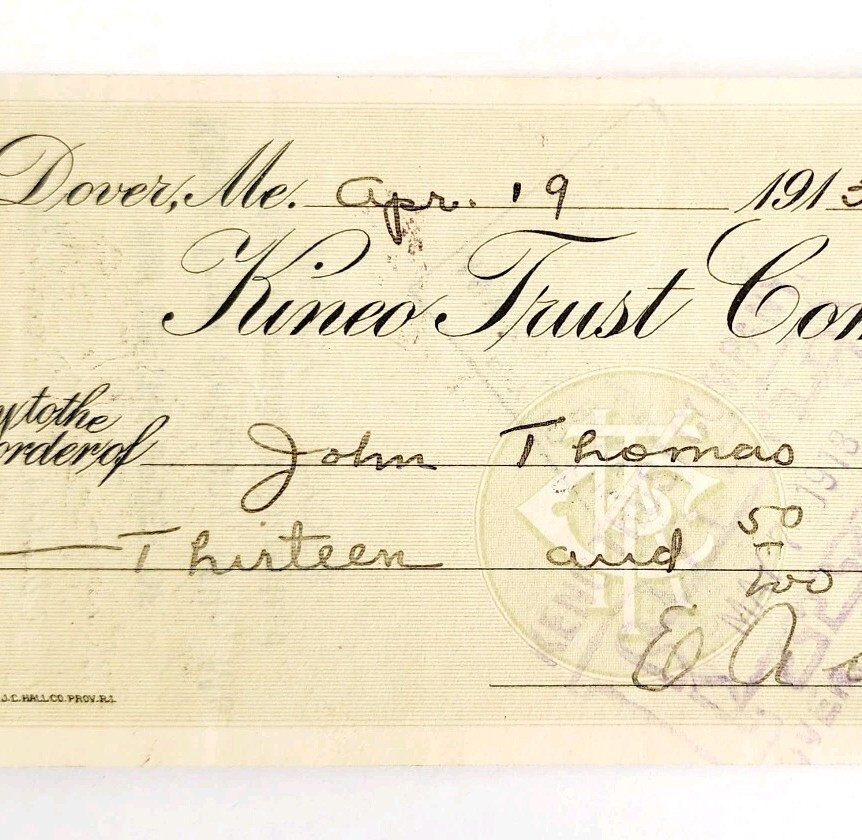 Dover, Me. Apr. 19 1913
Kineo Trust Com
y to the
order of John Thomas
Thirteen and 50/100
E A
J.C. HALL CO. PROV. R.I.